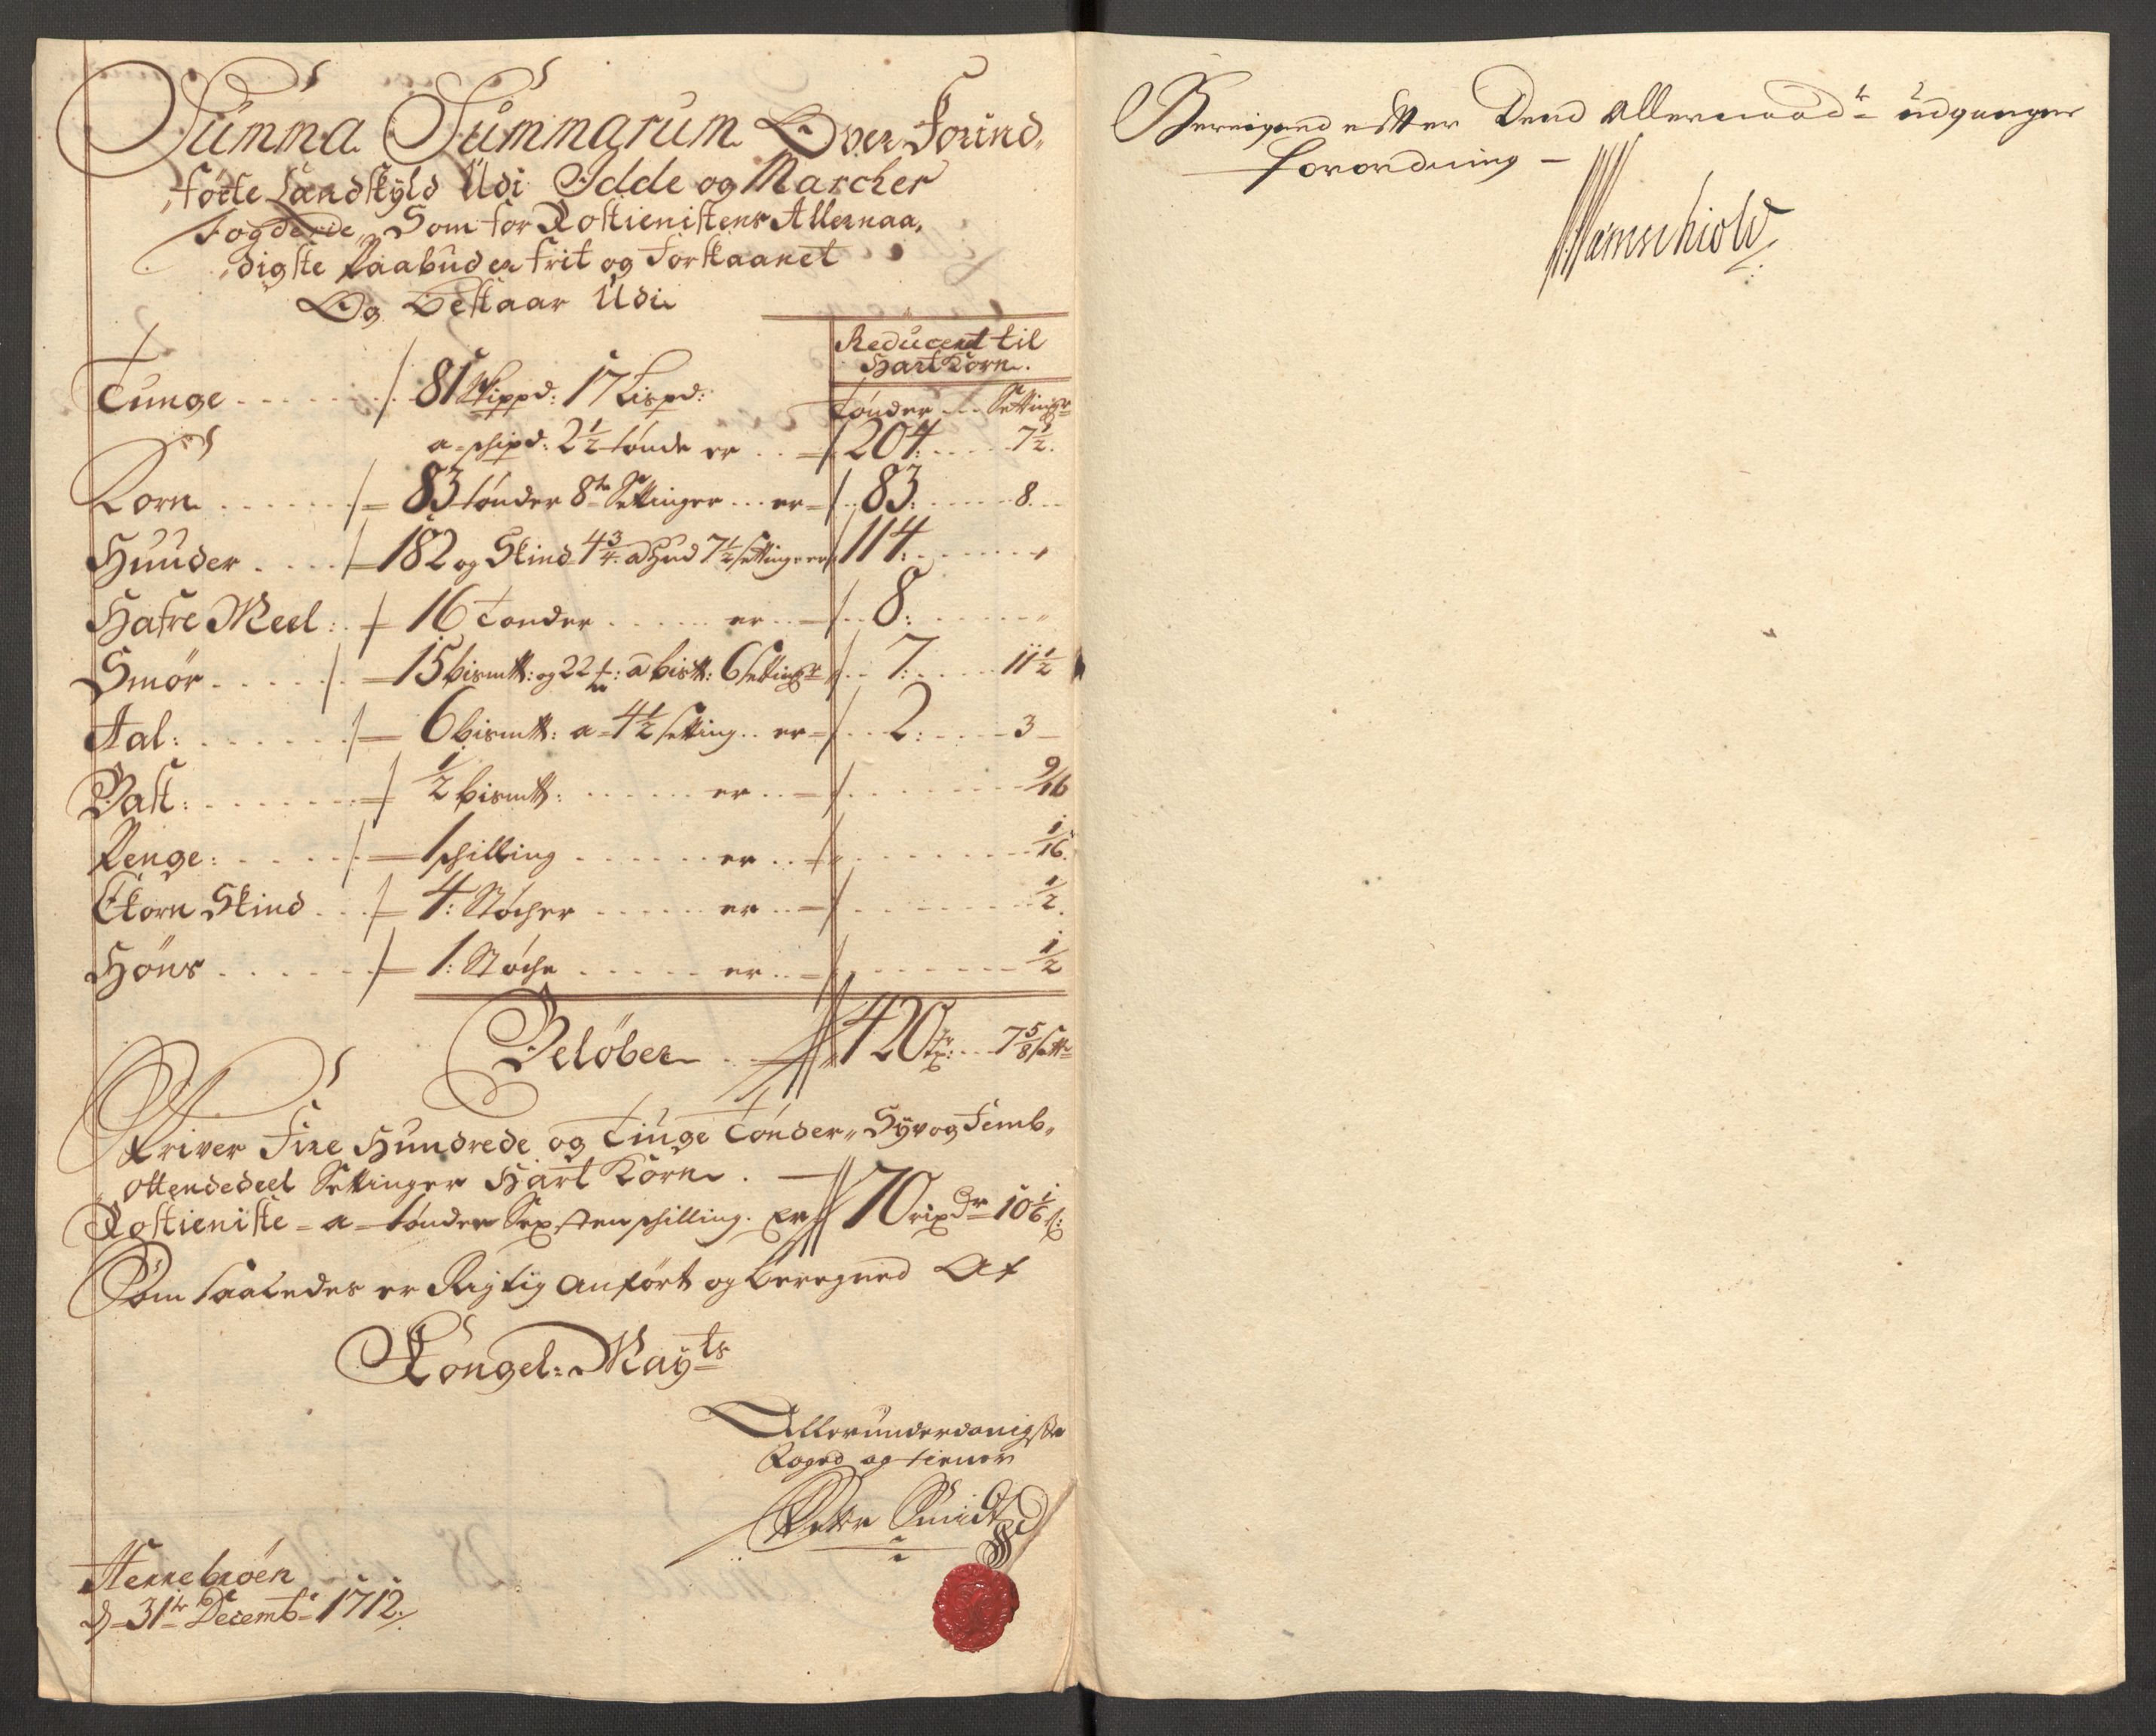 Summa Summarum Over Forind,
,førte Landskyld Udi Idde og Marcker
Fogderie, Som for Rostienistens Allernaa,
,digste Paabud er frit og Forskaanet
Og Bestaar Udi
Reducert til
Hart Korn.
Tønder Settinger
Tunge 81 Skippd: 17 Lispd:
a schipd: 2½ tønde er 204: 7½.
Korn 83 tønder 8 Settinger er 83: 8.
Huuder 182 og Skind 4¾ a Hud 7½ setting er 114: "
Hafre Meel: 16 Tønder er 8: "
Smør 15 bismtt: og 22 a bistt: 6 settinger 7: 11½
Aal: 6 bismtt: a 4½ setting er 2: 3
Bast: ½ bismtt: er 9/16
Penge: 1 schilling er 1/16.
Ekorn Skind 4: Støcher er ½.
Høns 1: Støche er ½
Beløber 420 Tr: 7⅝ sett
Skriver Fire Hundrede og Tiuge Tønder, Syv og Femb,
,ottendedeel Settinger Hart Korn.
Rostieniste a tønder Sexsten schilling. Er 70 rixdr 10⅙ s:
Som saaledes er Rigtig anført og beregned Af
Kongel: Mayts
Allerunderdanigste
Foged og tiener
Peter Smidt
Hennebrøen
d 31te Decembr 1712.
Beregned efter Dend allernaadte udgangne
forordning